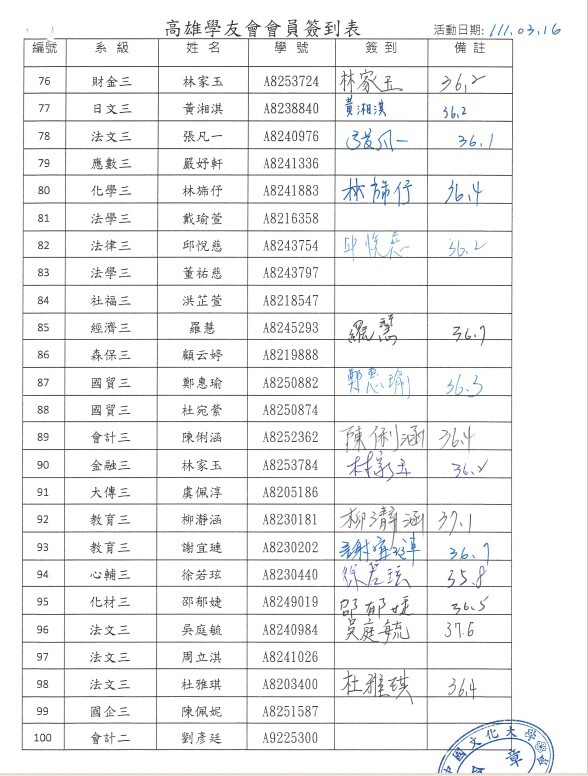 高雄學友會會員簽到表 活動日期: 111.03.16
編號 系級 姓名 學號 簽到 備註
76 財金三 林家玉 A8253724 林家玉 36.2
77 日文三 黃湘淇 A8238840 黃湘淇 36.2
78 法文三 張凡一 A8240976 張凡一 36.1
79 應數三 嚴妤軒 A8241336
80 化學三 林旆伃 A8241883 林旆伃 36.4
81 法學三 戴瑜萱 A8216358
82 法律三 邱悅慈 A8243754 邱悅慈 36.2
83 法學三 董祐慈 A8243797
84 社福三 洪芷萱 A8218547
85 經濟三 羅慧 A8245293 羅慧 36.7
86 森保三 顧云婷 A8219888
87 國貿三 鄭惠瑜 A8250882 鄭惠瑜 36.3
88 國貿三 杜宛縈 A8250874
89 會計三 陳俐涵 A8252362 陳俐涵 36.4
90 金融三 林家玉 A8253784 林家玉 36.2
91 大傳三 虞佩淳 A8205186
92 教育三 柳瀞涵 A8230181 柳瀞涵 37.1
93 教育三 謝宜璉 A8230202 謝宜璉 36.7
94 心輔三 徐若玹 A8230440 徐若玹 35.8
95 化材三 邵郁婕 A8249019 邵郁婕 36.5
96 法文三 吳庭毓 A8240984 吳庭毓 37.6
97 法文三 周立淇 A8241026
98 法文三 杜雅琪 A8203400 杜雅琪 36.4
99 國企三 陳佩妮 A8251587
100 會計二 劉彥廷 A9225300
中國文化大學
章